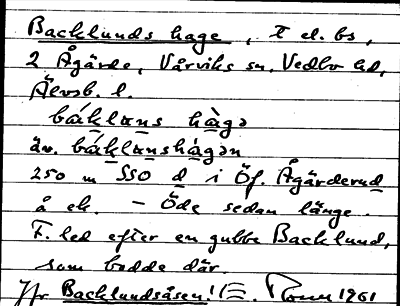 Backlunds hage, t el. bs,
2 Ågärde, Vårviks sn, Vedbo hd,
Älvsb. l.
báklans hàgə
äv. báklanshàgən
250 m SSO d i Öf. Ågärderud
å ek. - Öde sedan länge.
F. led efter en gubbe Backlund,
som bodde där.
Jfr Backlundsåsen! 1961